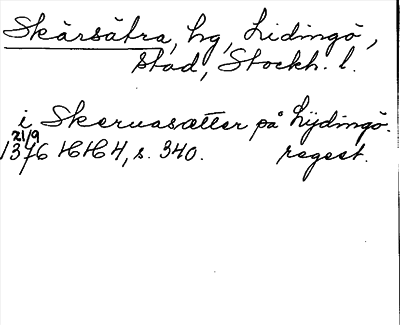 Skärsätra, hg, Lidingö,
stad, Stockh. l.
i Skeruasætter på Lijdingö.
21/9
1376 HH4, s. 340. regest.